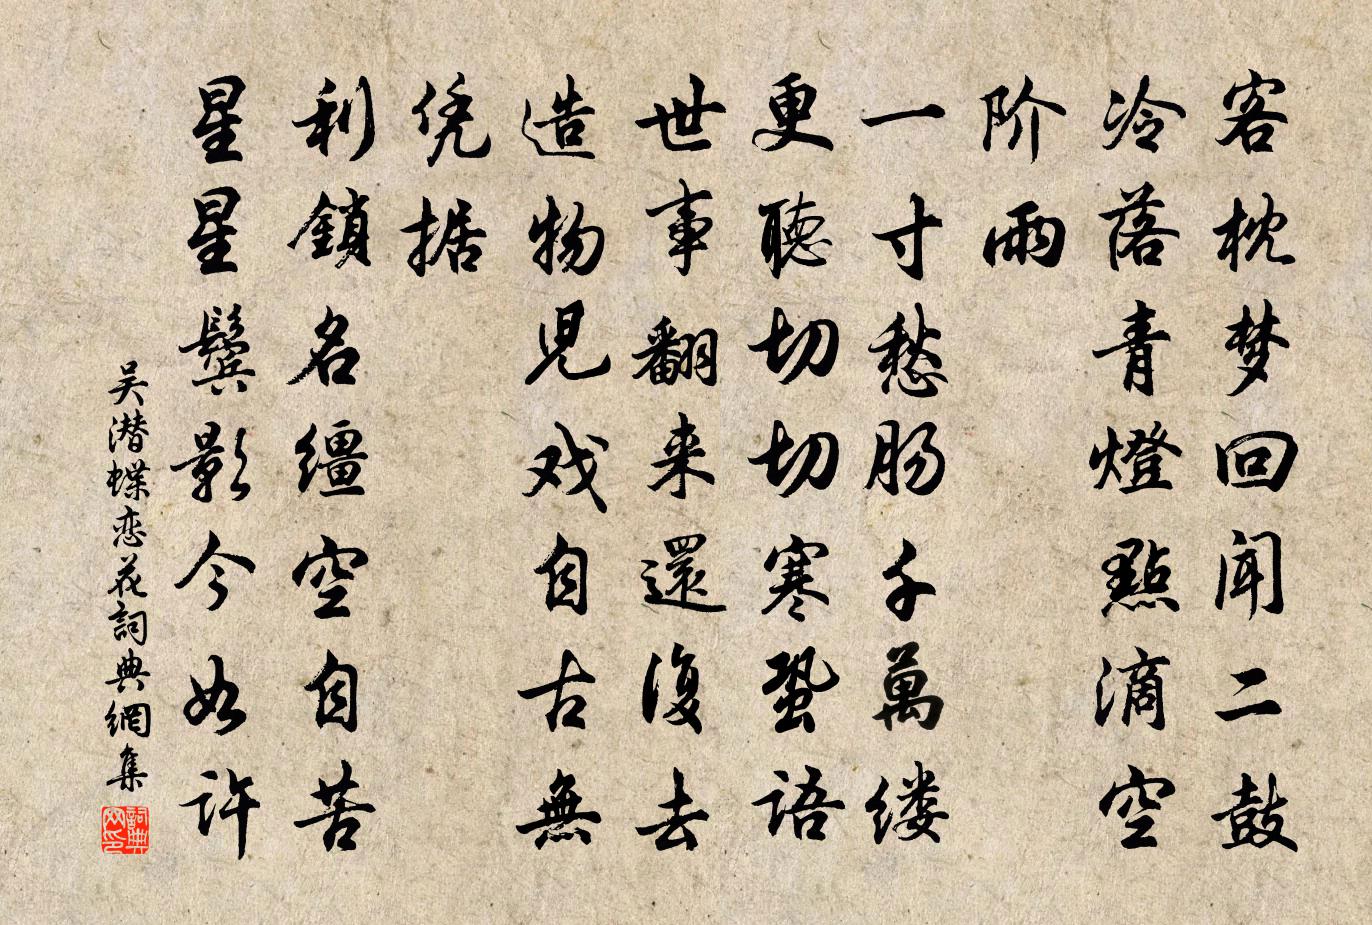 客枕梦回闻二鼓
冷落青燈點滴空
阶雨
一寸愁肠千萬缕
更聽切切寒蛩语
世事翻来還復去
造物児戏自古無
凭据
利鎖名缰空自苦
星星鬓影今如许
吴潜蝶恋花詞典網集
詞典网印